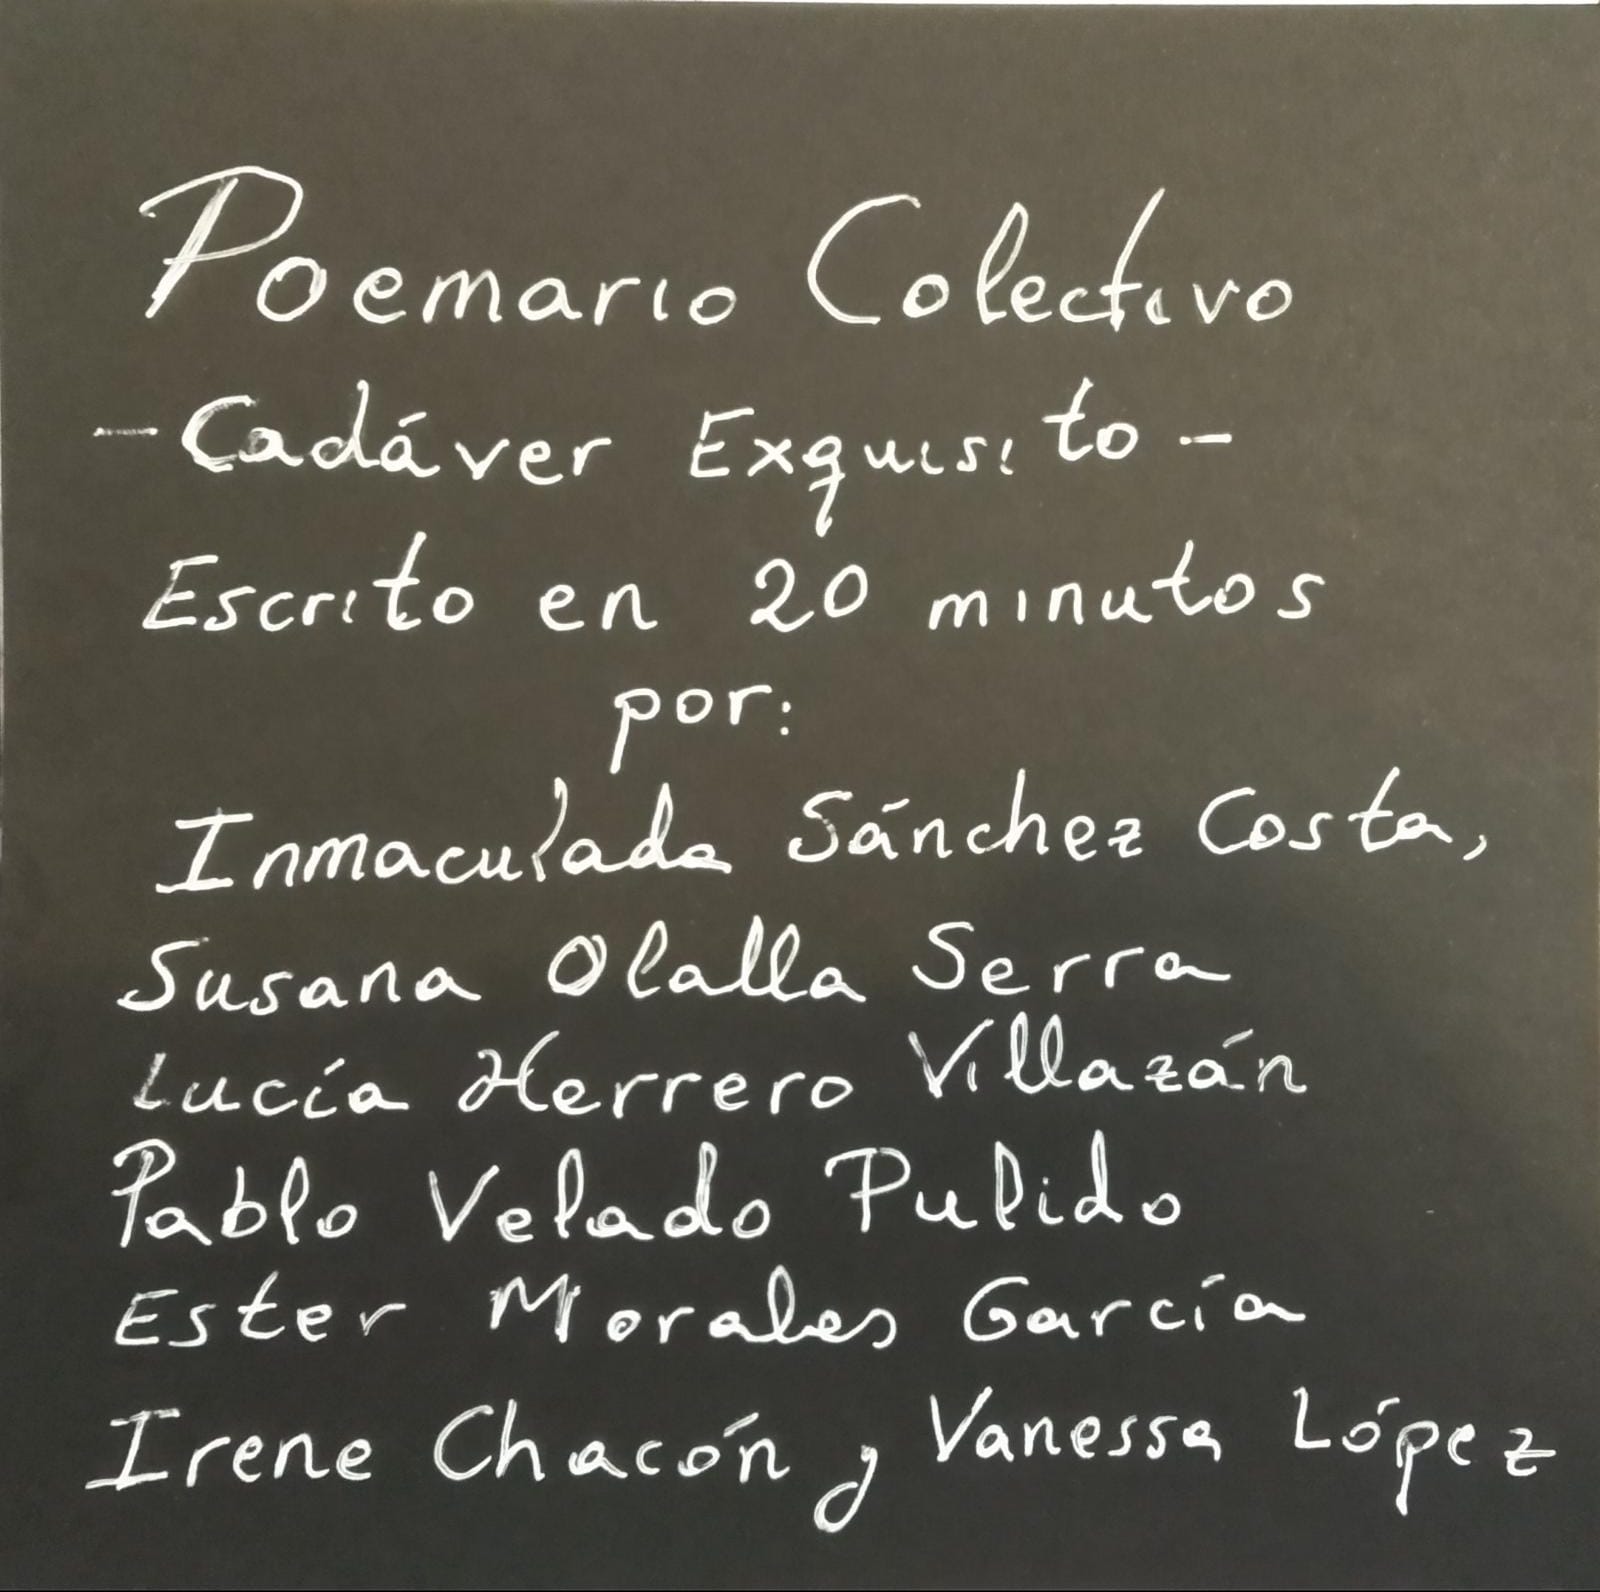 Poemario Colectivo
- Cadáver Exquisito -
Escrito en 20 minutos
por:
Inmaculada Sánchez Costa,
Susana Olalla Serra
Lucía Herrero Villazán
Pablo Velado Pulido
Ester Morales García
Irene Chacón y Vanessa López